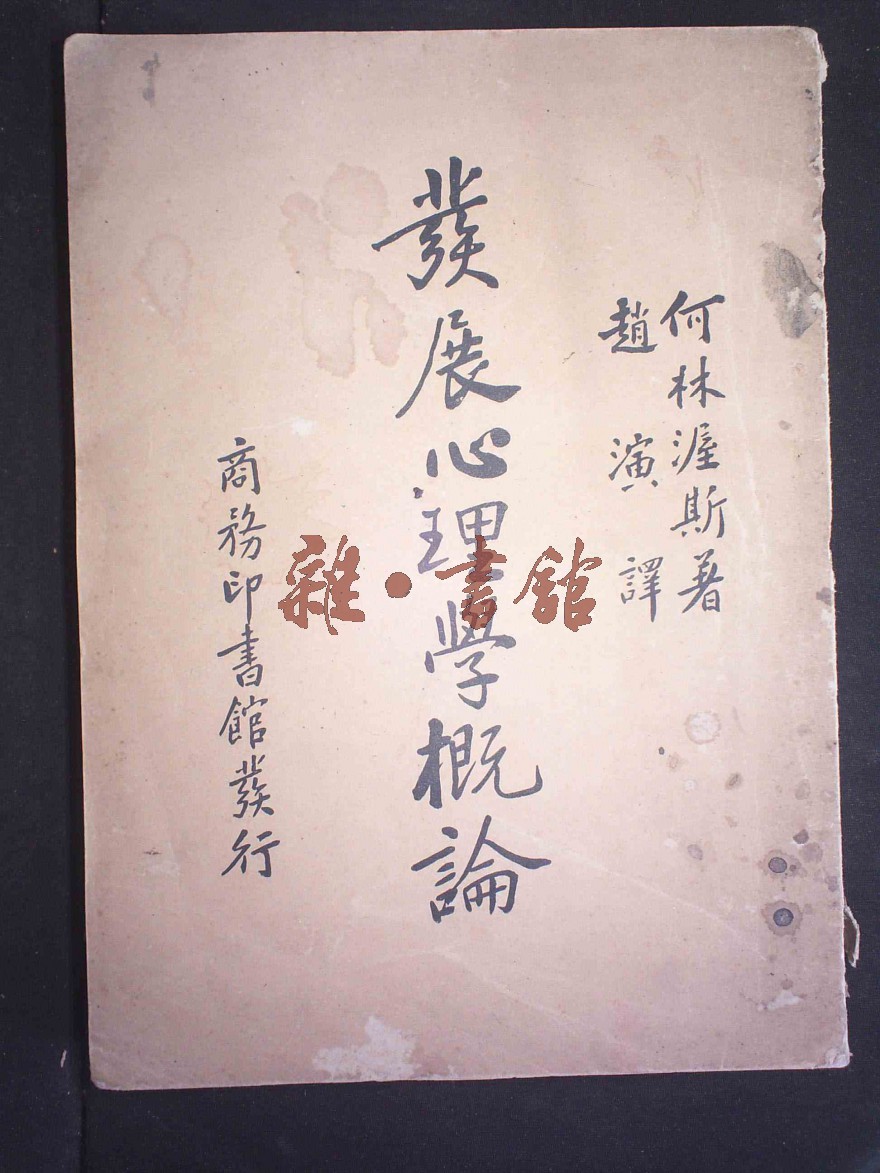 何林渥斯著
趙演譯
發展心理學概論
商務印書館發行
雜·書館